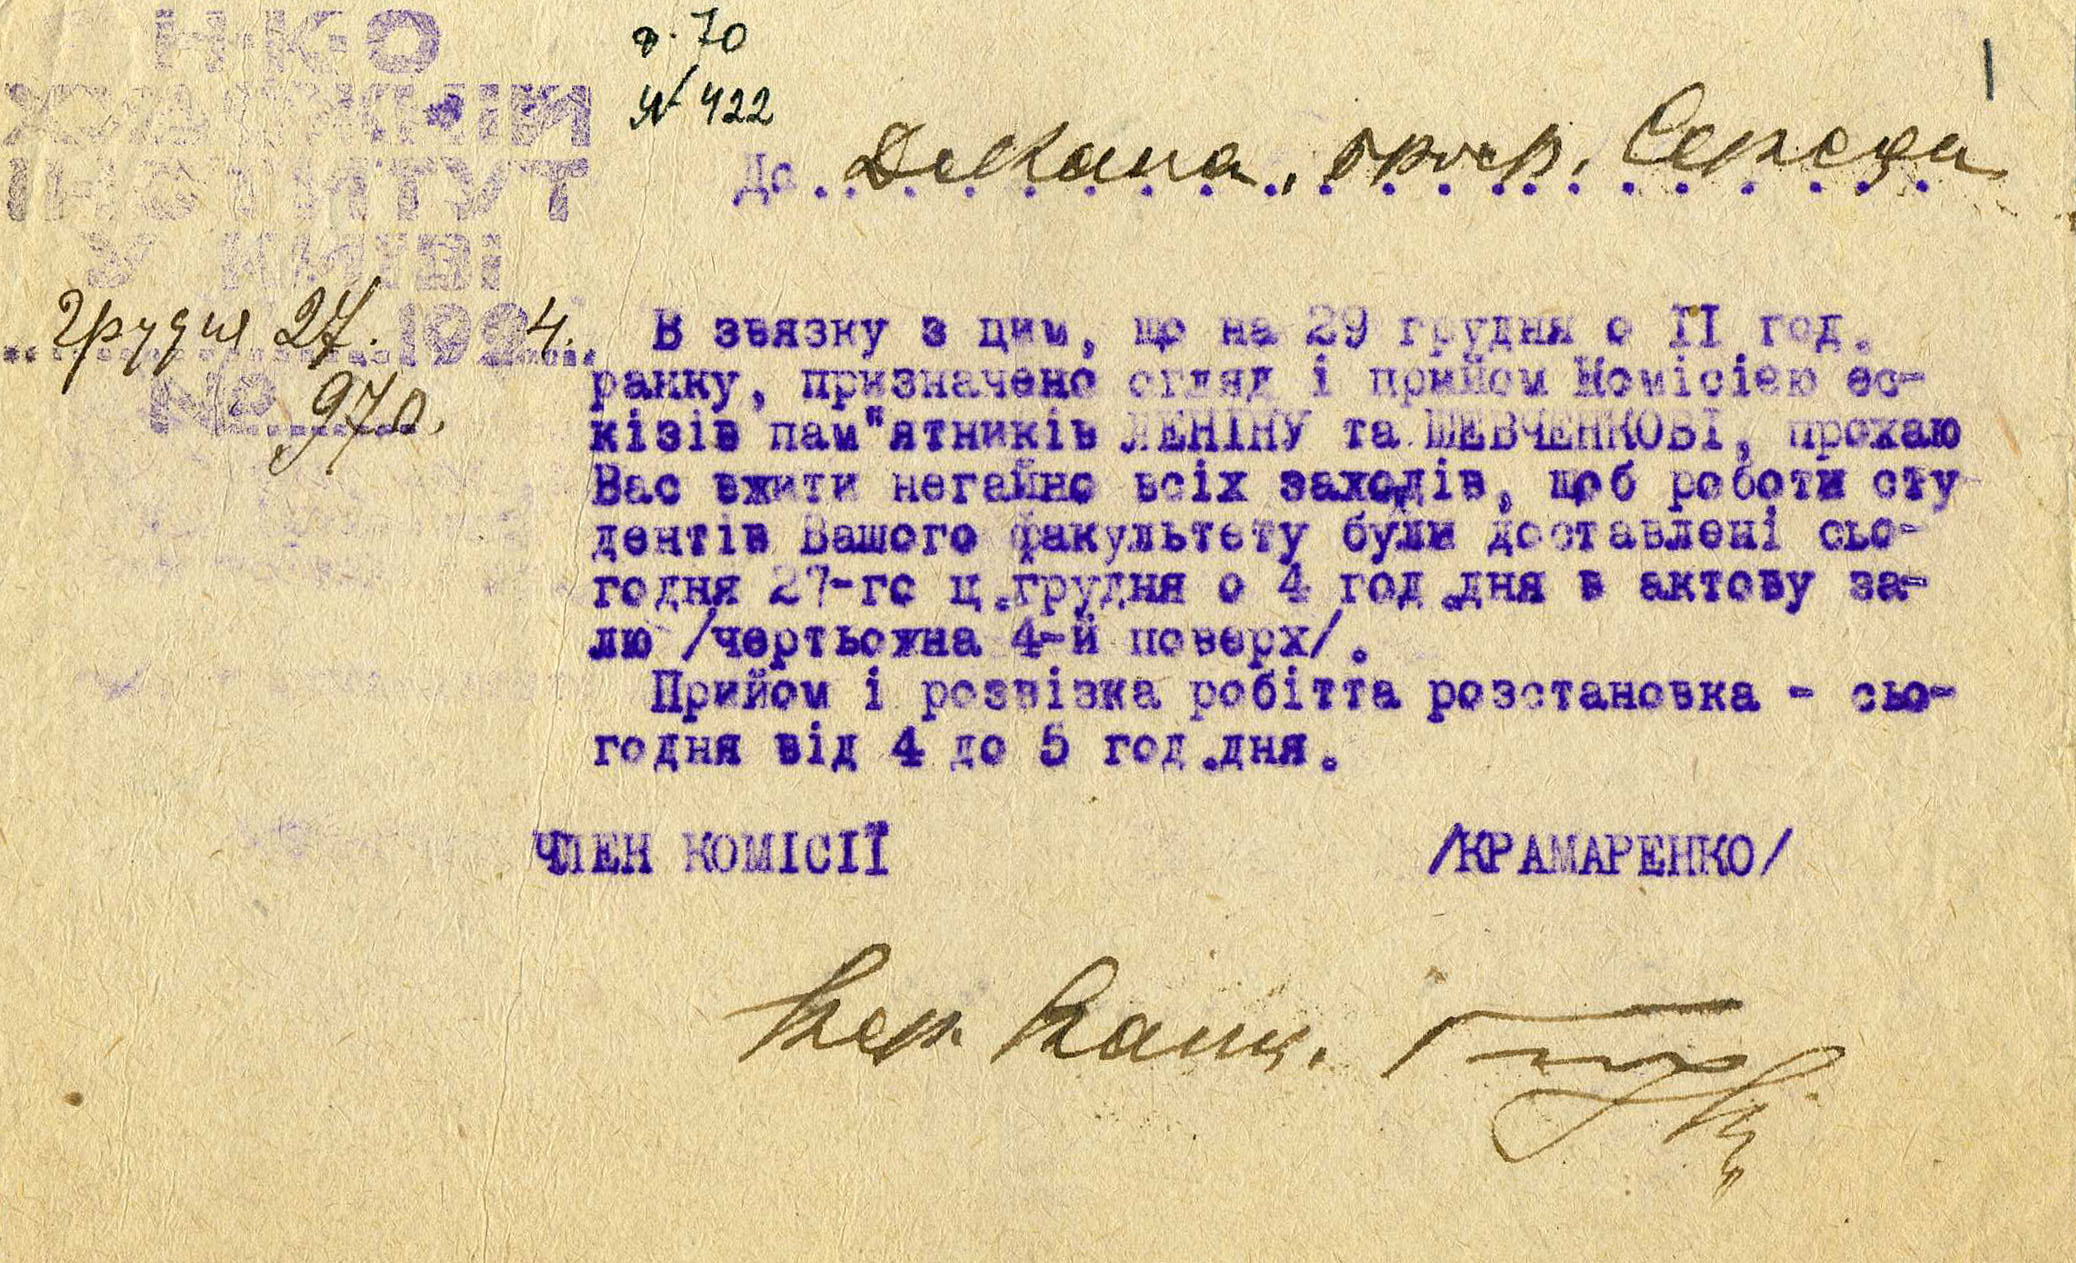 Н·К·О
ХУДОЖНІЙ
ІНСТИТУТ
У КИЇВІ
грудня 27. 1924.
№ 970.
ф. 70
№ 422
1
До Декана, проф. Середи
В звязку з цим, що на 29 грудня о II год.
ранку, призначено огляд і прийом Комісією ес-
кізів пам"ятників ЛЕНІНУ та ШЕВЧЕНКОВІ, прохаю
Вас вжити негайно всіх заходів, щоб роботи сту
дентів Вашого факультету були доставлені сьо-
годня 27-го ц.грудня о 4 год.дня в актову за-
лю /чертьожна 4-й поверх/.
Прийом і розвізка робітта розстановка - сьо-
годня від 4 до 5 год.дня.
ЧЛЕН КОМІСІЇ /КРАМАРЕНКО/
Кер. Канц.